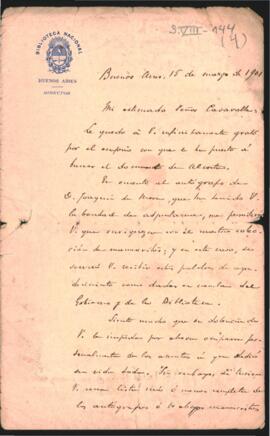 S.VIII-144
(4)
BIBLIOTECA NACIONAL
BUENOS AIRES
DIRECTOR
Buenos Aires, 15 de marzo de 1901
Mi estimado Señor Casavalle:
Le quedo á V. infinitamente grato
por el empeño con que se ha puesto á
buscar el documento de Alcorta.
En cuanto al autógrafo de
D. Joaquín de Mora, que ha tenido V.
la bondad de
V. que enriquezca con él nuestra colec-
ción de manuscritos; y en este caso, se
servirá V. recibir estas palabras de agra-
decimiento como dadas en nombre del
Gobierno y de la Biblioteca.
Siento mucho que su dolencia
V. le impida por ahora ocuparse perso-
nalmente de los asuntos á que dedicó
su vida toda. Sin embargo, si
V. una lista más ó menos completa de
los autógrafos ó manuscritos